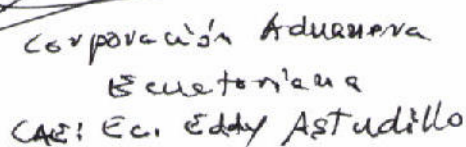 Corporación Aduanera
Ecuatoriana
CAE: Ec. Eddy Astudillo